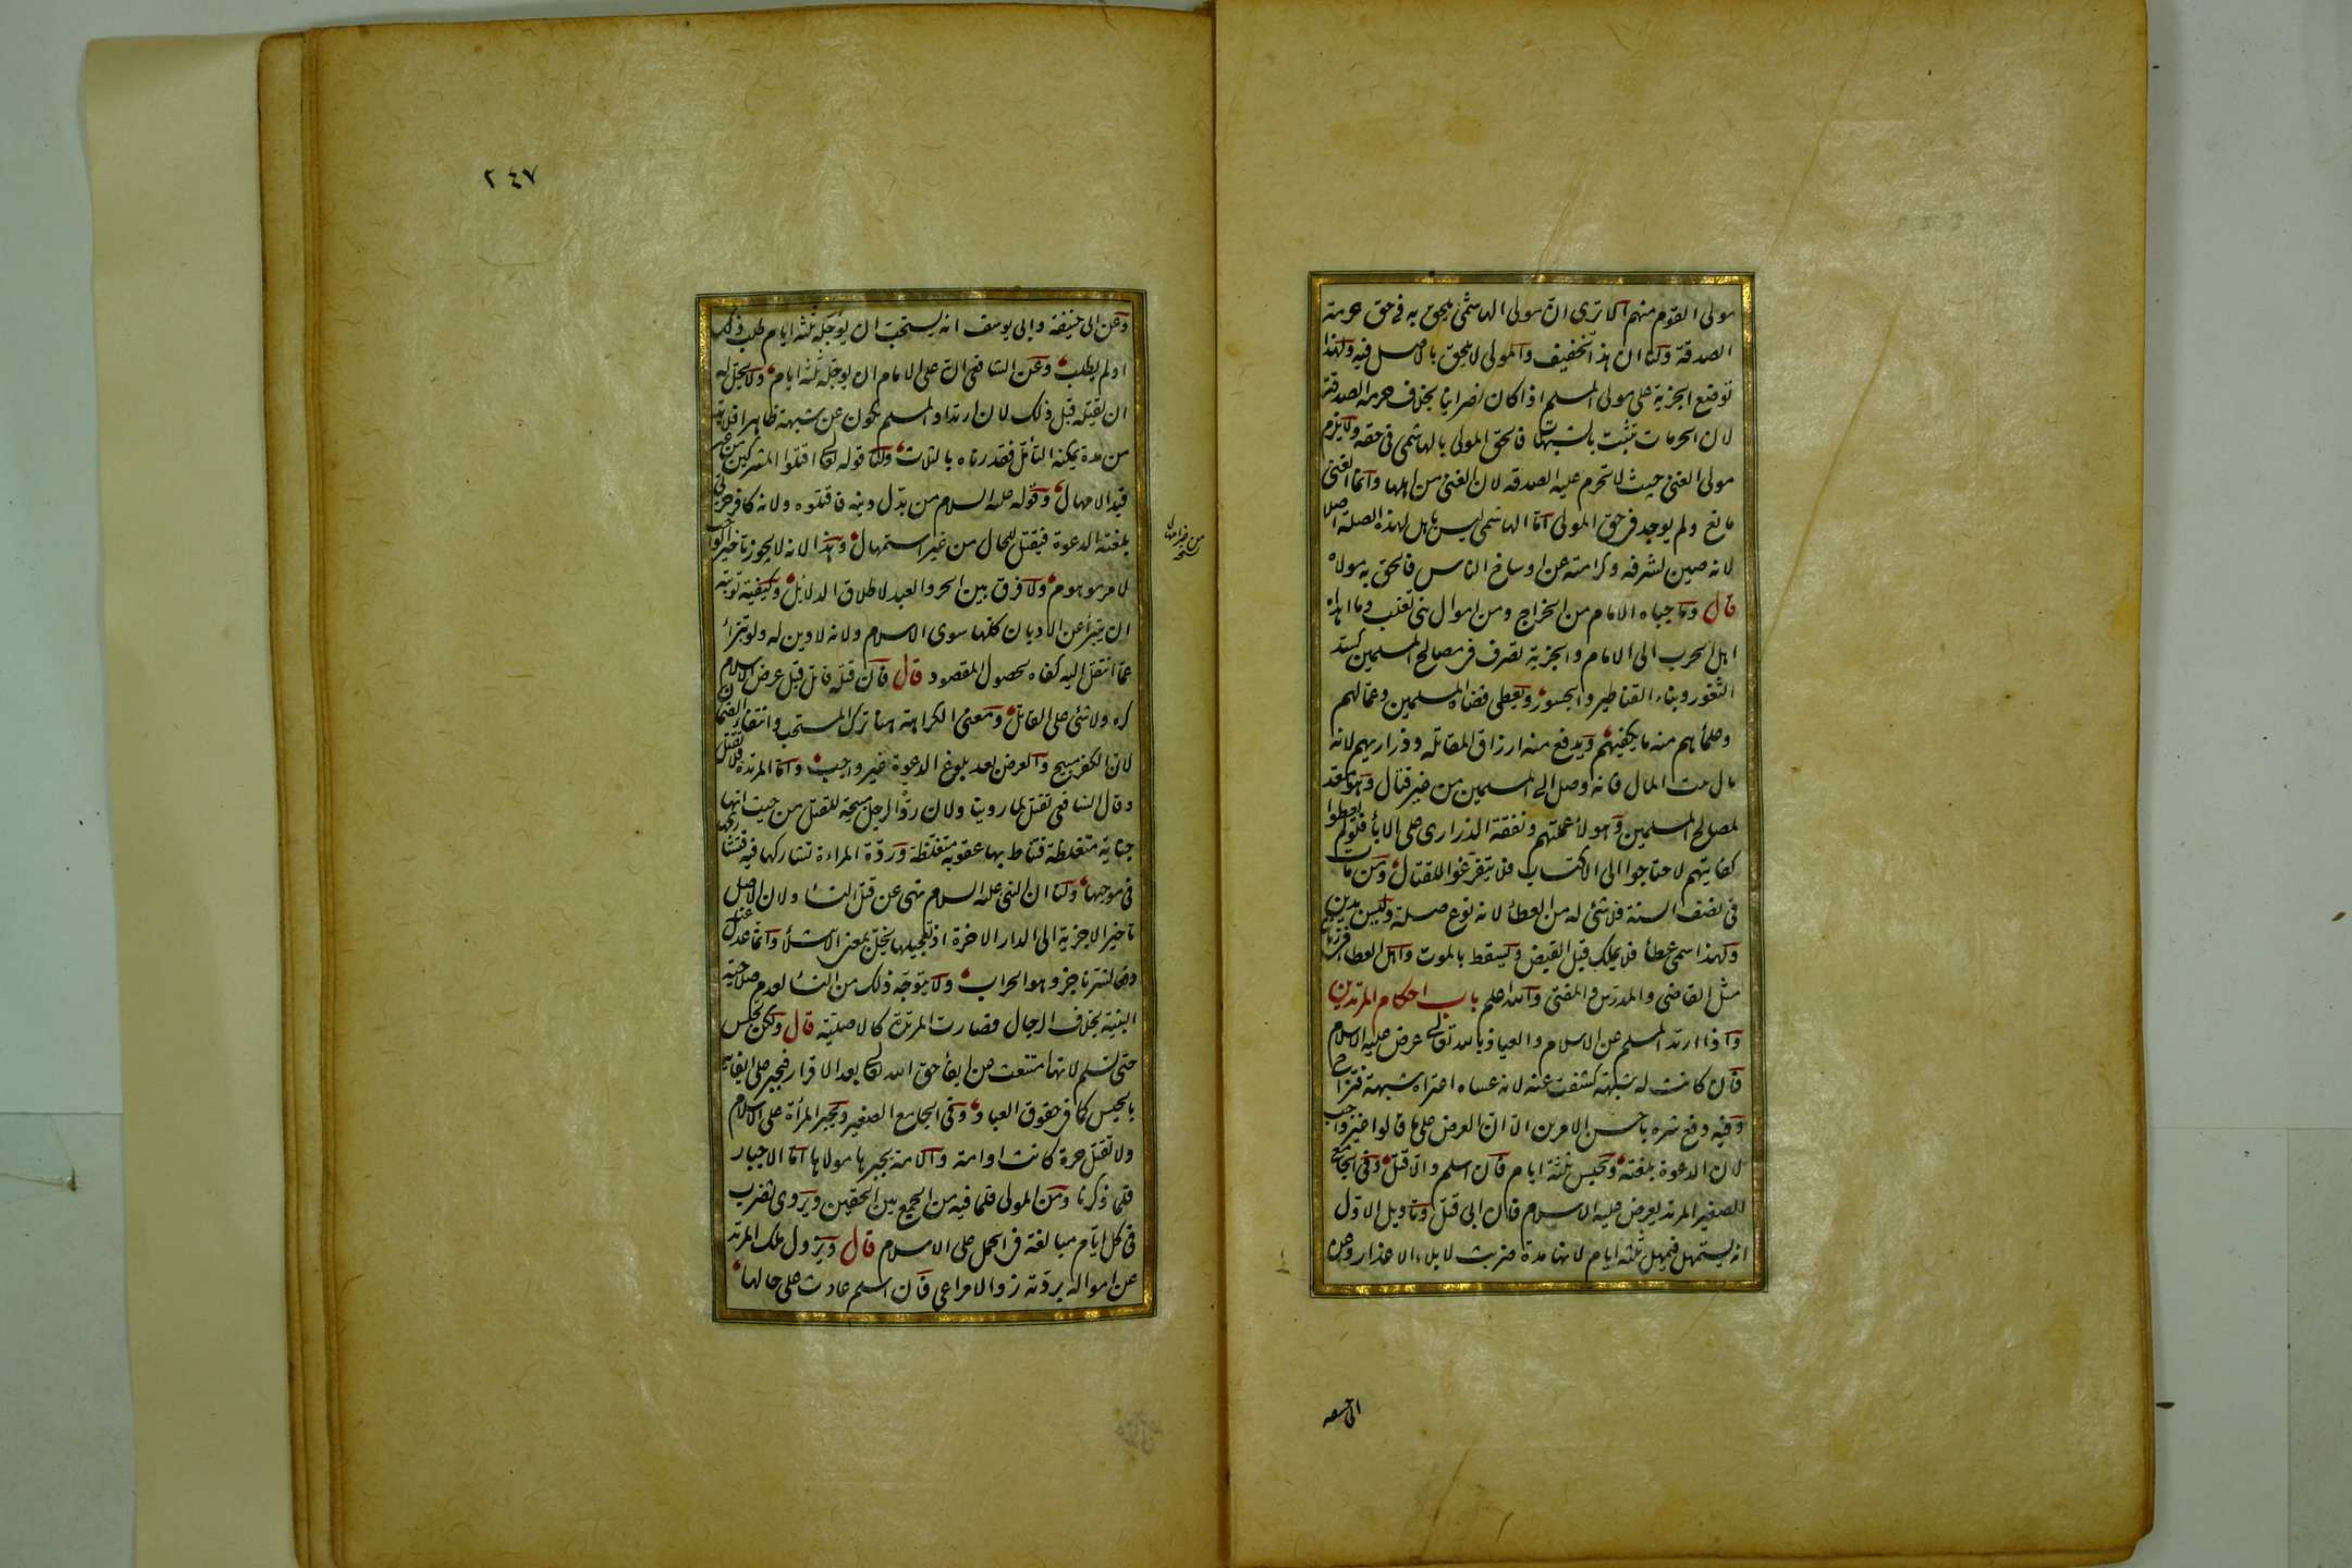 مولى القوم منهم الا ترى ان مولى الهاشمى يلحق به فى حق حرمة
الصدقة ولنا ان هذا تخفيف والمولى لا يلحق بالاصل فيه ولهذا
توضع الجزية على مولى المسلم اذا كان نصرانيا بخلاف حرمة الصدقة
لان الحرمات تثبت بالشبهات فالحق المولى بالهاشمى فى حقه ولا يلزم
مولى الغنى حيث لا تحرم عليه الصدقة لان الغنى من اهلها وانما الغنى
مانع ولم يوجد فى حق المولى اما الهاشمى ليس باهل لهذه الصلة اصلا
لانه صين لشرفه وكرامته عن اوساخ الناس فالحق به مولاه
قال وما جباه الامام من الخراج ومن اموال بنى تغلب وما اهداه
اهل الحرب الى الامام والجزية تصرف فى مصالح المسلمين كسد
الثغور وبناء القناطير والجسور ويعطى قضاة المسلمين وعمالهم
وعلمأهم منه ما يكفيهم ويدفع منه ارزاق المقاتلة وذراريهم لانه
مال بيت المال فانه وصل الى المسلمين من غير قتال وهو معد
لمصالح المسلمين وهولأ عملتهم ونفقة الذرارى على الابأ فلو لم يعطوا
كفايتهم لاحتاجوا الى الاكتساب فلا يتفرغوا للقتال ومن مات
فى نصف السنة فلا شئ له من العطأ لانه نوع صلة وليس بدين
ولهذا سمى عطأ فلا يملك قبل القبض ويسقط بالموت واهل العطاء فى زماننا
مثل القاضى والمدرس والمفتى والله اعلم باب احكام المرتدين
واذا ارتد المسلم عن الاسلام والعياذ بالله تعالى عرض عليه الاسلام
فان كانت له شبهة كشفت عنه لانه عساه اعتراه شبهة فتزاح
وفيه دفع شره باحسن الامرين الا ان العرض على ما قالوا غير واجب
لان الدعوة بلغته ويحبس ثلثة ايام فان اسلم والا قتل وفى الجامع
الصغير المرتد يعرض عليه الاسلام فان ابى قتل وتاويل الاول
انه يستمهل فيمهل ثلثة ايام لانها مدة ضربت لابلاء الاعذار وعن
٢٤٧
وعن ابى حنيفة وابى يوسف انه يستحب ان يؤجله ثلثة ايام طلب ذلك
او لم يطلب وعن الشافعى ان على الامام ان يوجله ثلثة ايام ولا يحل له
ان يقتله قبل ذلك لان ارتداد المسلم يكون عن شبهة ظاهرا فلا بد
من مدة يمكنه التأمل فقدرناه بالثلاث ولنا قوله تعالى اقتلوا المشركين من غير
قيد الامهال وقوله عليه السلام من بدل دينه فاقتلوه ولانه كافر حربى
بلغته الدعوة فيقتل للحال من غير استمهال وهذا لانه لا يجوز تأخير الواجب
لامر موهوم ولا فرق بين الحر والعبد لاطلاق الدلائل وكيفية توبته
ان يتبرأ عن الاديان كلها سوى الاسلام ولانه لا دين له ولو تبرأ
عما انتقل اليه كفاه لحصول المقصود قال فان قتله قاتل قبل عرض الاسلام
كره ولا شئ على القاتل ومعنى الكراهة هنا ترك المستحب وانتفاء الضمان
لان الكفر مبيح والعرض بعد بلوغ الدعوة غير واجب واما المرتدة فلا تقتل
وقال الشافعى تقتل لما روينا ولان ردة الرجل مبيحة للقتل من حيث انها
جناية متغلظة فتناط بها عقوبة متغلظة وردة المراءة تشاركها فيه فتشاركها
فى موجبها ولنا ان النبى عليه السلام نهى عن قتل النسأ ولان الاصل
تأخير الاجزية الى الدار الاخرة اذ تعجيلها يخل بمعنى الابتلأ وانما عدل عنه
دفعا لشر ناجز وهو الحراب ولا يتوجه ذلك من النسأ لعدم صلاحية
البنية بخلاف الرجال فصارت المرتدة كالاصلية قال ولكن تحبس
حتى تسلم لانها امتنعت عن ايفأ حق الله تعالى بعد الاقرار فتجبر على ايفائه
بالحبس كما فى حقوق العباد وفى الجامع الصغير وتجبر المرأة على الاسلام
ولا تقتل حرة كانت او امة والامة يجبرها مولاها اما الاجبار
فلما ذكرنا ومن المولى فلما فيه من الجمع بين الحقين ويروى تضرب
فى كل ايام مبالغة فى الحمل على الاسلام قال ويزول ملك المرتد
عن امواله بردته زوالا مراعى فان اسلم عادت على حالها